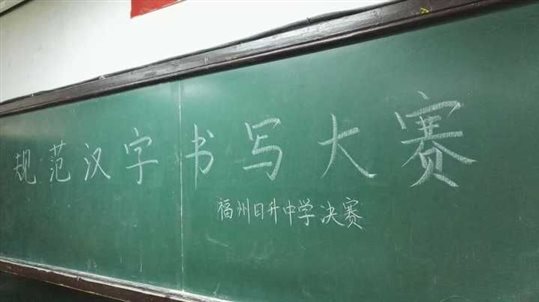 规范汉字书写大赛
福州日升中学决赛